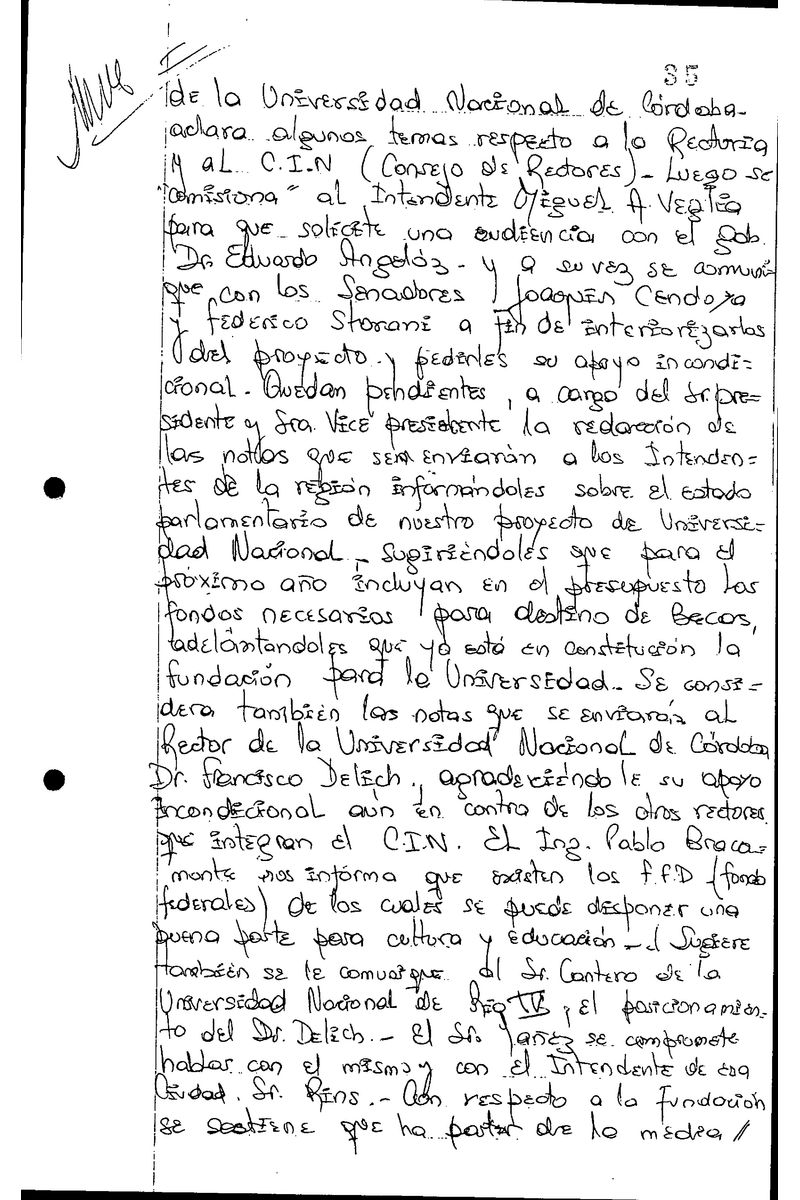 35
de la Universidad Nacional de Córdoba-
aclara algunos temas respecto a la Rectoría
y al C.I.N (Consejo de Rectores)- Luego se
"comisiona" al Intendente Miguel A. Veglia
para que solicite una audiencia con el gob.
Dr. Eduardo Angelóz - y a su vez se comuni-
que con los Senadores Joaquín Cendoya
y Federico Storani a fin de interiorizarlos
del proyecto y pedirles su apoyo incondi=
cional. Quedan pendientes, a cargo del Sr. pre=
sidente y Sra. Vice presidente la redacción de
las notas que se enviarán a los Intenden=
tes de la región informándoles sobre el estado
parlamentario de nuestro proyecto de Universi=
dad Nacional - sugiriéndoles que para el
próximo año incluyan en el presupuesto los
fondos necesarios para destino de Becas,
adelántandoles que ya está en constitución la
fundación para la Universidad. Se consi=
dera también las notas que se enviarán al
Rector de la Universidad Nacional de Córdoba
Dr. Francisco Delich, agradeciéndole su apoyo
incondicional aún en contra de los otros rectores
que integran el C.I.N. El Ing. Pablo Braca=
monte nos informa que existen los f.f.D (fondo
federales) de los cuales se puede disponer una
buena parte para cultura y educación - Sugiere
también se le comunique al Sr. Cantero de la
Universidad Nacional de Río IV, el posicionamien-
to del Dr. Delich.- El Sr. Yañez se compromete
hablar con el mismo y con el Intendente de esa
Ciudad. Sr. Rins.- Con respecto a la fundación
se sostiene que ha partir de la media //